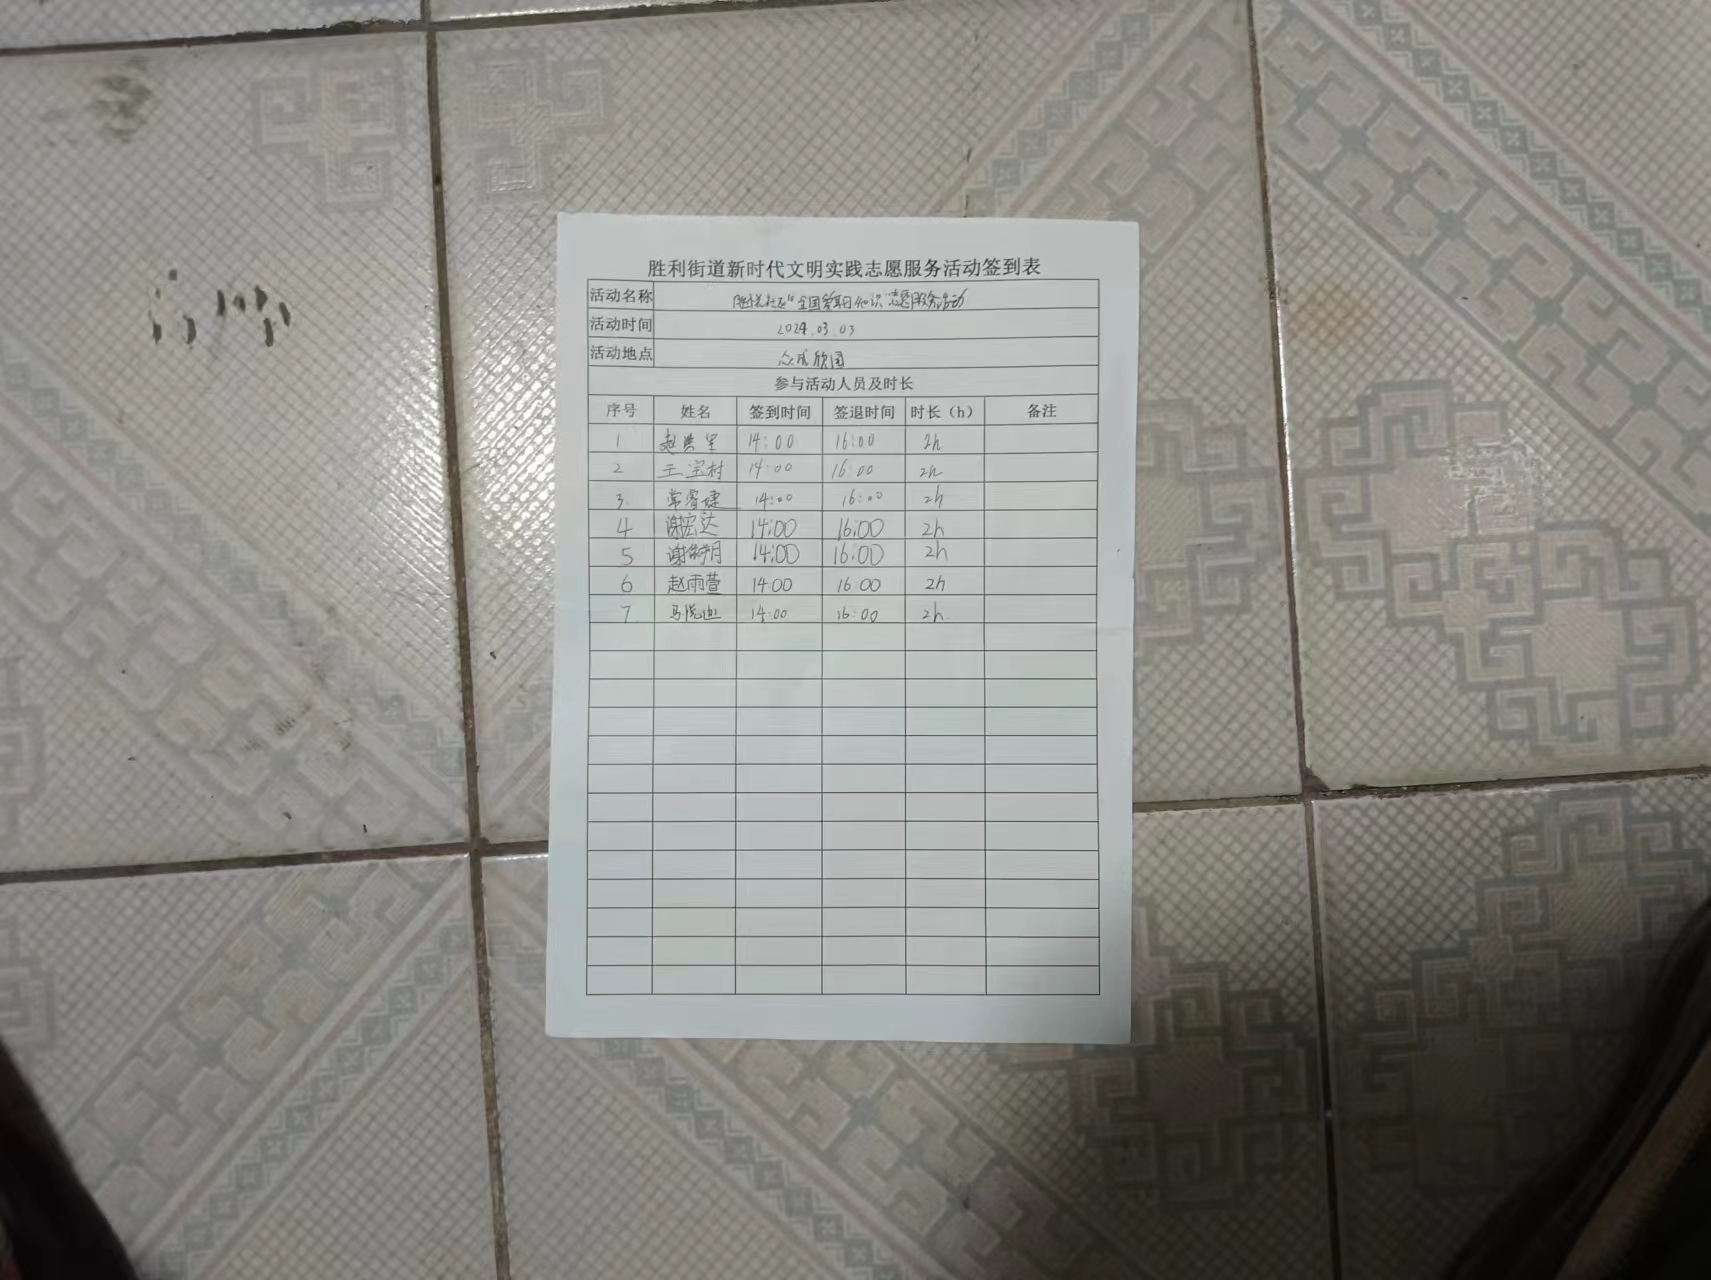 胜利街道新时代文明实践志愿服务活动签到表
活动名称 社区"全国爱耳日知识志愿服务活动
活动时间 2024.03.03
活动地点 众成欣园
参与活动人员及时长
序号 姓名 签到时间 签退时间 时长（h） 备注
1 赵 14:00 16:00 2h
2 王宝村 14:00 16:00 2h
3. 常睿婕 14:00 16:00 2h
4 谢宏达 14:00 16:00 2h
5 谢 14:00 16:00 2h
6 赵雨萱 14:00 16:00 2h
7. 马悦迪 14:00 16:00 2h.